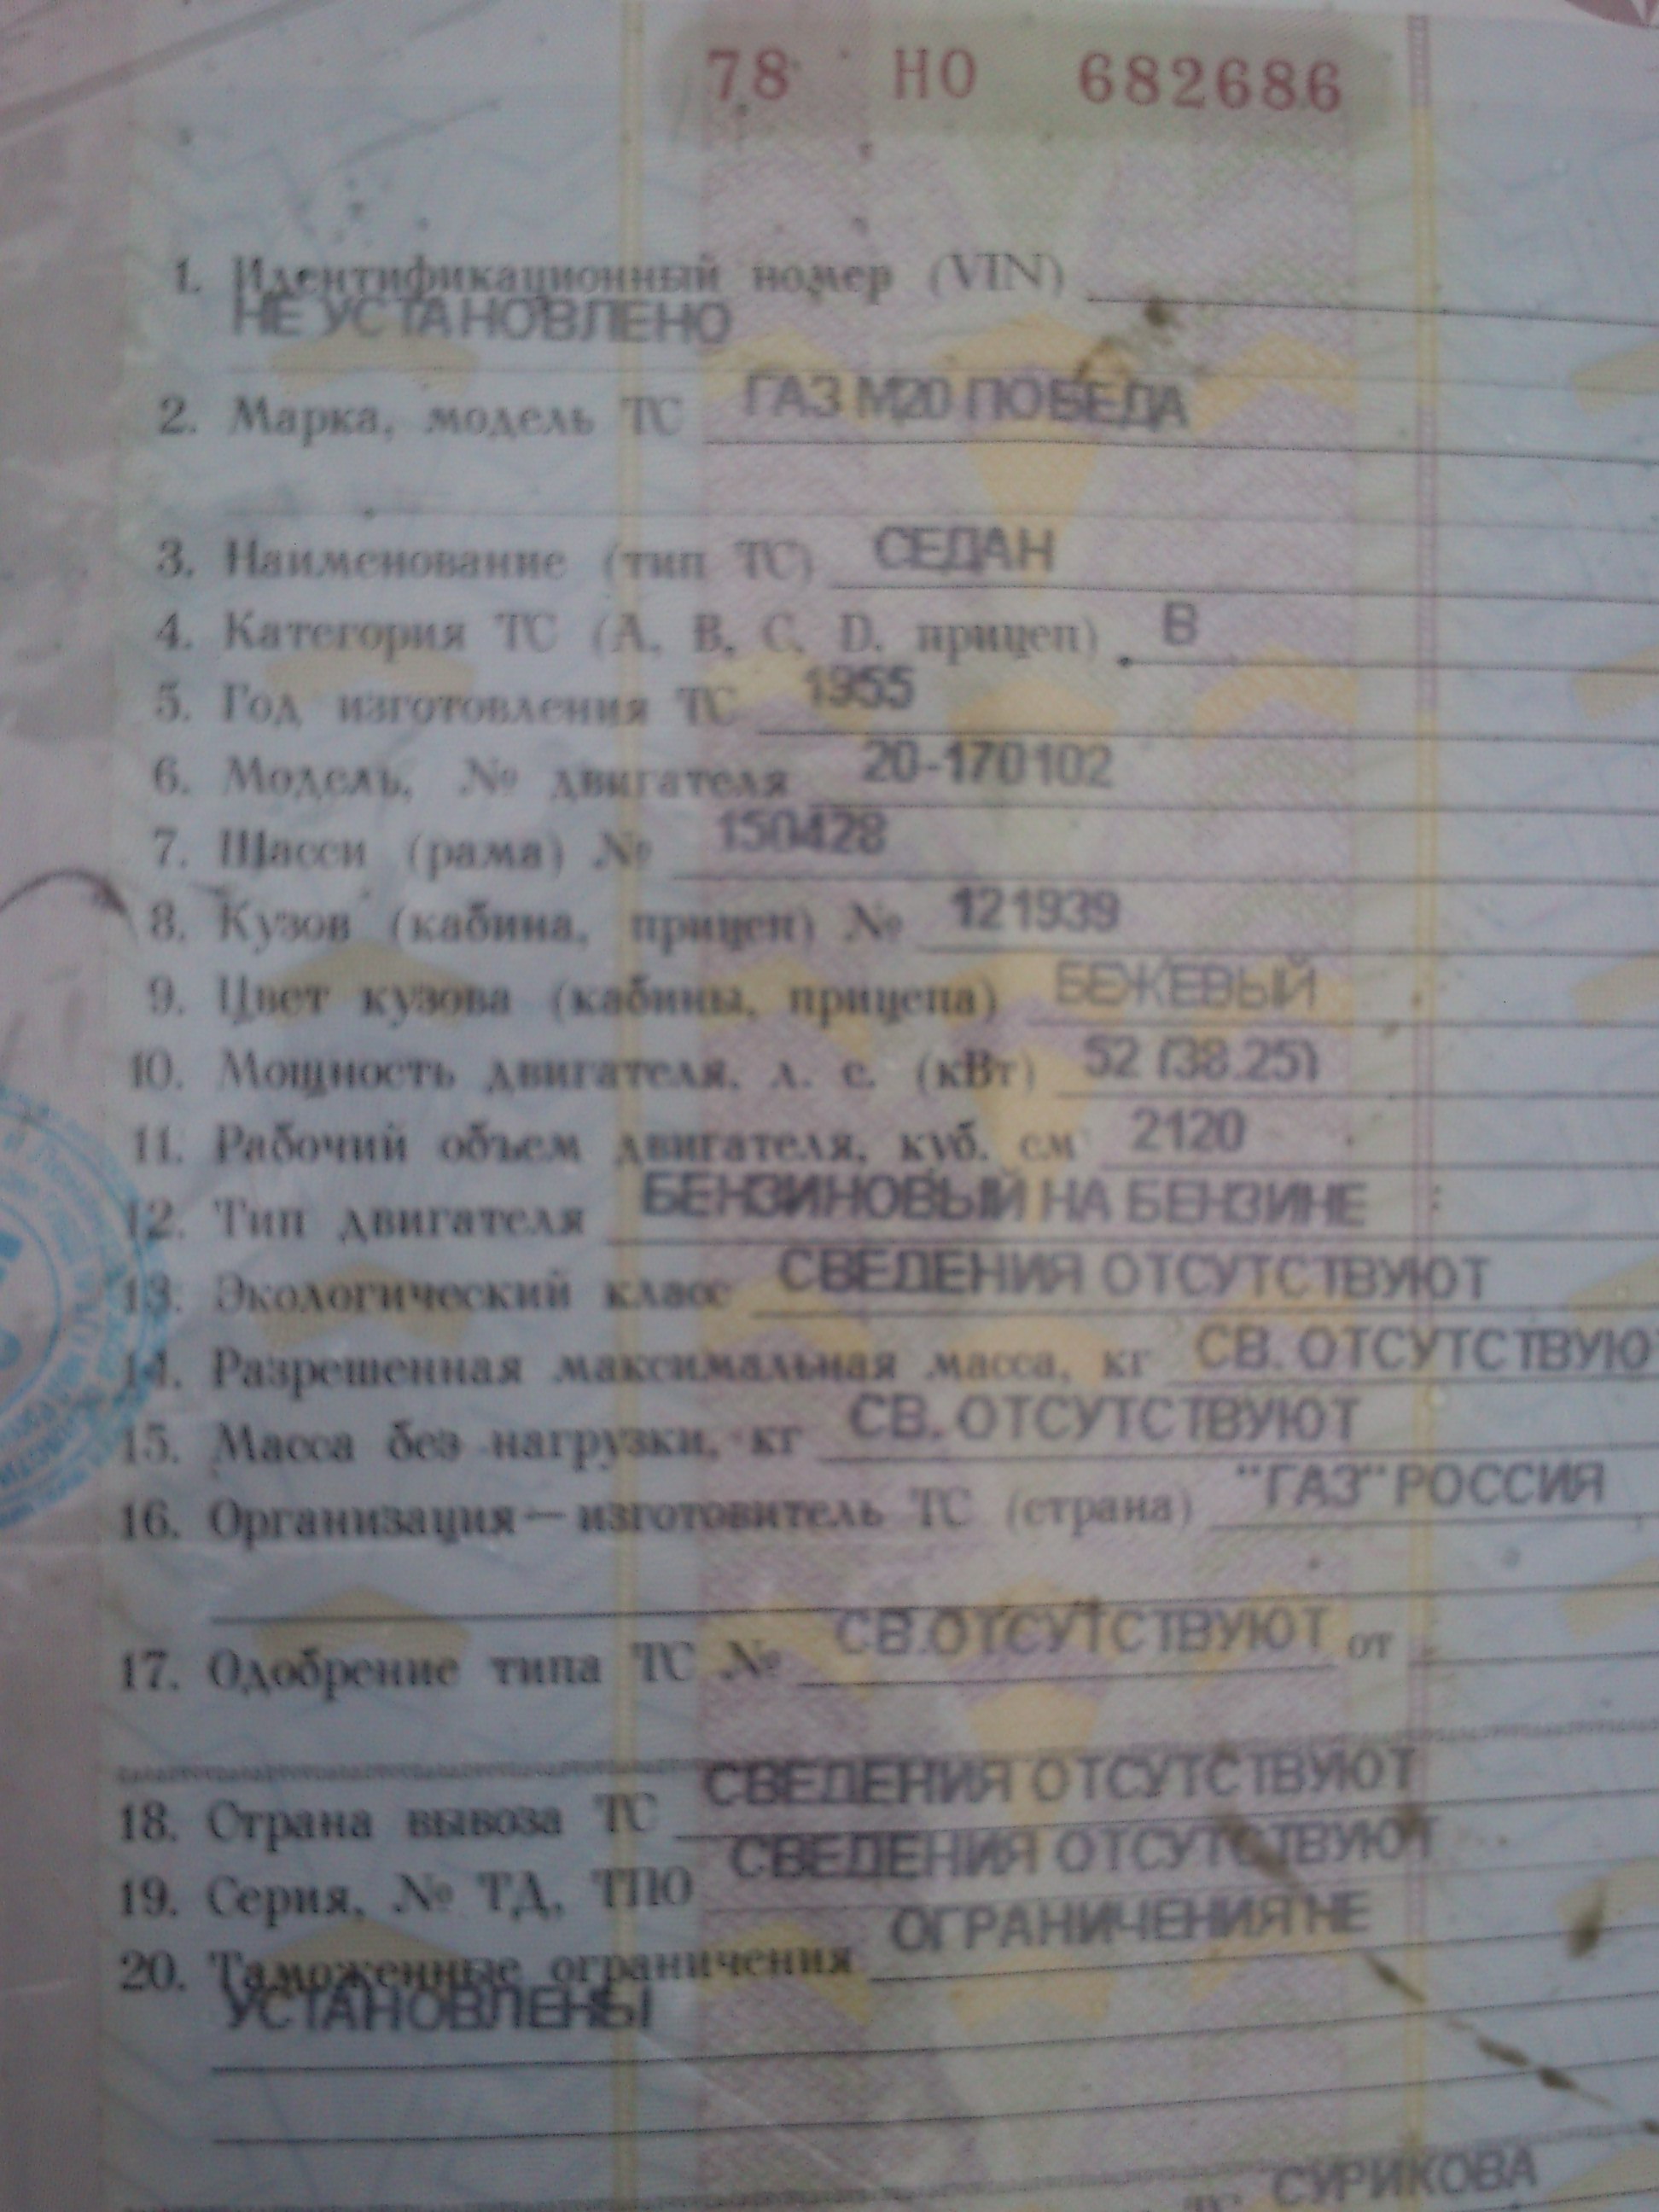 78 НО 682686
1. Идентификационный номер (VIN)
НЕ УСТАНОВЛЕНО
2. Марка, модель ТС ГАЗ М20 ПОБЕДА
3. Наименование (тип ТС) СЕДАН
4. Категория ТС (А, В, С, D, прицеп) В
5. Год изготовления ТС 1955
6. Модель, № двигателя 20-170102
7. Шасси (рама) № 150428
8. Кузов (кабина, прицеп) № 121939
9. Цвет кузова (кабины, прицепа) БЕЖЕВЫЙ
10. Мощность двигателя, л. с. (кВт) 52 (38.25)
11. Рабочий объем двигателя, куб. см 2120
12. Тип двигателя БЕНЗИНОВЫЙ НА БЕНЗИНЕ
13. Экологический класс СВЕДЕНИЯ ОТСУТСТВУЮТ
14. Разрешенная максимальная масса, кг СВ. ОТСУТСТВУЮ
15. Масса без нагрузки, кг СВ. ОТСУТСТВУЮТ
16. Организация—изготовитель ТС (страна) "ГАЗ" РОССИЯ
17. Одобрение типа ТС № СВ.ОТСУТСТВУЮТ от
18. Страна вывоза ТС СВЕДЕНИЯ ОТСУТСТВУЮТ
19. Серия, № ТД, ТПО СВЕДЕНИЯ ОТСУТСТВУЮТ
20. Таможенные ограничения ОГРАНИЧЕНИЯ НЕ
УСТАНОВЛЕНЫ
ТС СУРИКОВА